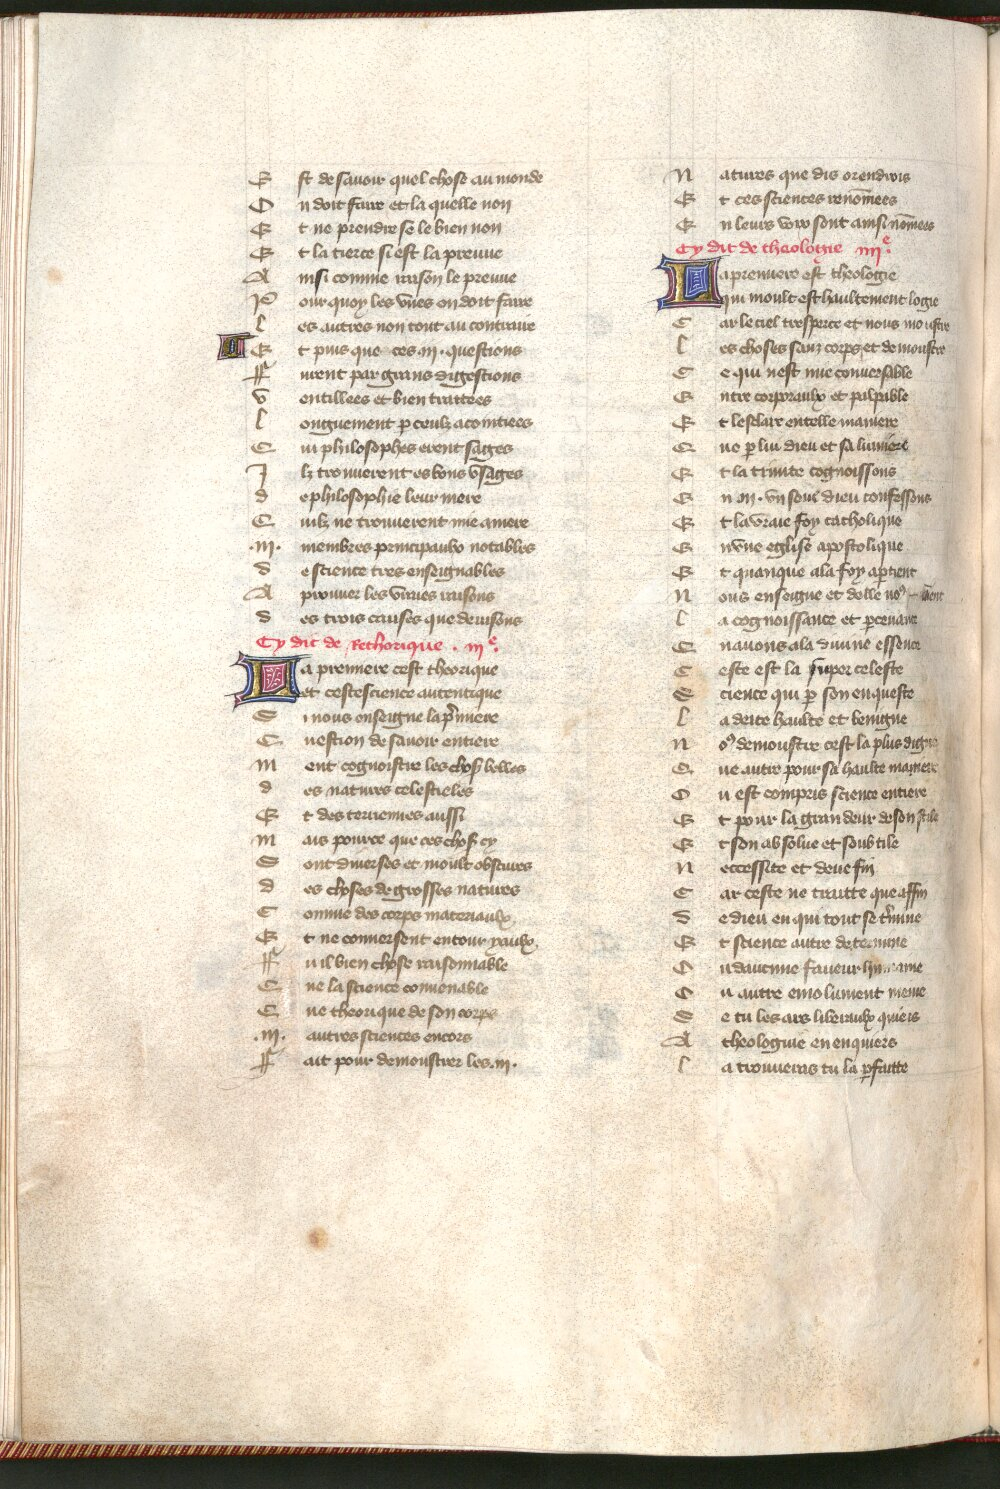 Est de savoir quel chose au monde
On doit faire et la quelle non
Et ne prendre se le bien non
Et la tierce si est la preuve
Ainsi comme raison le preuve
Pour quoy les unes en doit faire
Les autres non tout au contraire
Et puis que ces .iii. questions
Furent par grans digestions
Ventillees et bien traittees
Longuement p ceulz acointiees
Qui philosophes erent sages
Ilz trouverent es bons usages
de philosophie leur mere
Quilz ne trouverent mie amere
.iii. membres principaulx notables
de science tres enseignables
A prouver les vraies raisons
des trois causes que devisons
Cy dit de Rethorique . iiie.
La premiere cest theorique
et ceste science autentique
Si nous enseigne la pmiere
Question de savoir entiere
ment cognoistre les choses belles
des natures celestieles
Et des terriennes aussi
mais pource que ces choses cy
Sont diverses et moult obscures
des choses de grosses natures
Comme des corps materiaulx
Et ne conversent entour yaulx.
Fu il bien chose raisonnable
Que la science convenable
Que theorique de son corps
.iii. autres sciences encors
Fait pour demonstrer les .iii.
Natures que dis orendrois
Et ces sciences renomees
En leurs voix sont ainsi nomees
Cy dit de theologie iiiie.
La premiere est theologie
qui moult est haultement logie
Car le ciel tresperce et nous moustre
Les choses sanz corps et demoustre
Ce qui nest mie conversable
Entre corporaulx et palpable
Et lesclare en telle maniere
Que p lui dieu et sa lumiere
Et la trinite cognoissons
En .iii. un seul dieu confessons
Et la vraie foy catholique
En une eglise apostolique
Et quanque a la foy aptient
Nous enseigne et delle nos
La cognoissance et pcevance
Quavons a la divine essence
Ceste est la super celeste
Science qui p son enqueste
La deite haulte et benigne
Nos demoustre cest la plus digne
Que autre pour sa haulte maniere
Ou est compris science entiere
Et pour la grandeur de son stile
Et son absolue et soubtile
Neccessite et deue fin
Car ceste ne traitte que affin
De dieu en qui tout se tmine
Et science autre determine
Ou daucune faveur humaine
Ou autre emolument meme
Se tu les ars liberaulx quiers
A theologie en enquiers
La trouveras tu la pfaitte